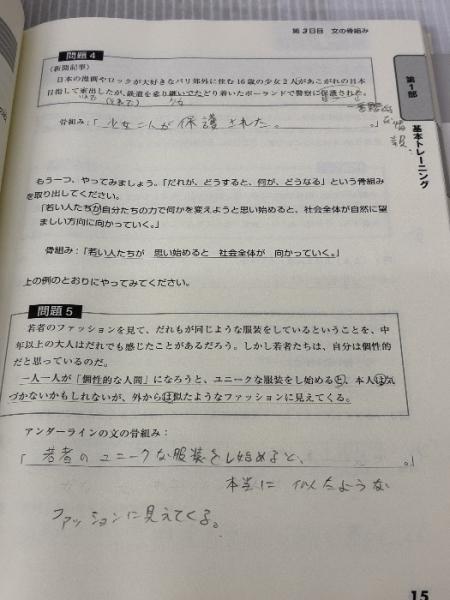 第3日目 文の骨組み
第1部
基本トレーニング
問題4
(新聞記事)
日本の漫画やロックが大好きなパリ郊外に住む16歳の少女2人があこがれの日本
目指して家出したが、鉄道を乗り継いでたどり着いたポーランドで警察に保護された。
骨組み:「少女二人が保護された。 。」
もう一つ、やってみましょう。「だれが、どうすると、何が、どうなる」という骨組み
を取り出してください。
「若い人たちが自分たちの力で何かを変えようと思い始めると、社会全体が自然に望
ましい方向に向かっていく。」
骨組み:「若い人たちが 思い始めると 社会全体が 向かっていく。」
上の例のとおりにやってみてください。
問題5
若者のファッションを見て、だれもが同じような服装をしているということを、中
年以上の大人はだれでも感じたことがあるだろう。しかし若者たちは、自分は個性的
だと思っているのだ。
一人一人が「個性的な人間」になろうと、ユニークな服装をし始めると、本人は気
づかないかもしれないが、外からは似たようなファッションに見えてくる。
アンダーラインの文の骨組み:
「若者のユニークな服装をし始めると、 。」
本当に 似たような
ファッションに見えてくる。
15